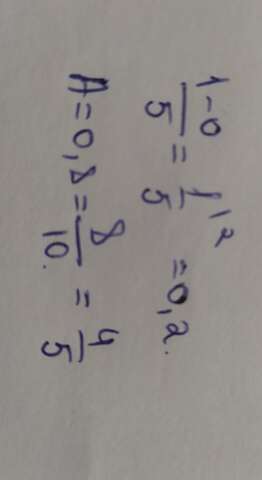 1-0/5 = 1/5 = 0,2.
A=0,8 = 8/10. = 4/5